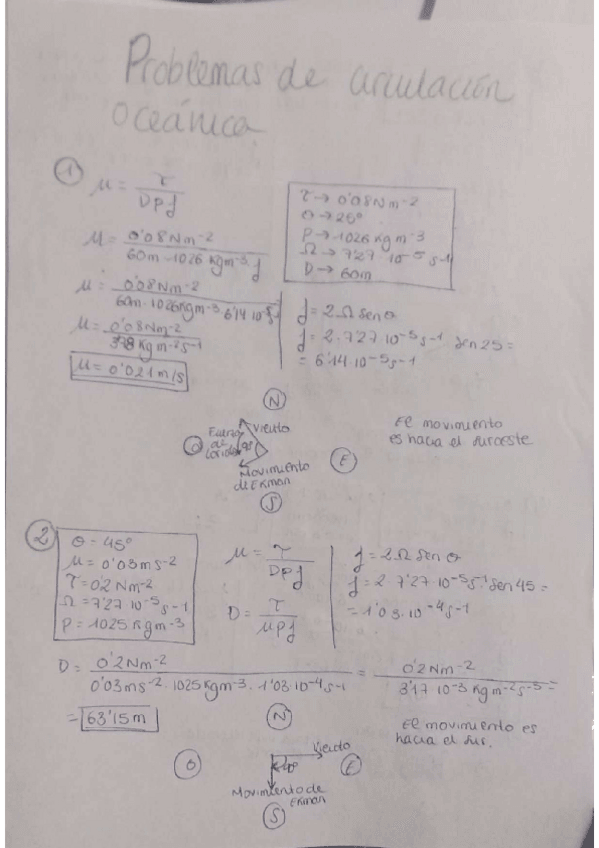 Problemas de circulación
oceánica
①
μ = τ / Dρf
τ → 0'08 Nm⁻²
θ → 25º
ρ → 1026 Kgm⁻³
Ω → 7'27 · 10⁻⁵ s⁻¹
D → 60m
μ = 0'08 Nm⁻² / 60m · 1026 Kgm⁻³ · f
μ = 0'08 Nm⁻² / 60m · 1026 Kgm⁻³ · 6'14 · 10⁻⁵ s⁻¹
μ = 0'08 Nm⁻² / 3'78 Kgm⁻² s⁻¹
μ = 0'021 m/s
f = 2 Ω sen θ
f = 2 · 7'27 · 10⁻⁵ s⁻¹ sen 25 =
= 6'14 · 10⁻⁵ s⁻¹
N
viento
Fuerza
de
O
90º
E
Movimiento
de Ekman
S
El movimiento
es hacia el suroeste
②
θ = 45º
μ = 0'03 ms⁻²
τ = 0'2 Nm⁻²
Ω = 7'27 · 10⁻⁵ s⁻¹
ρ = 1025 Kgm⁻³
μ = τ / Dρf
D = τ / μρf
f = 2 Ω sen θ
f = 2 7'27 · 10⁻⁵ s⁻¹ sen 45 =
= 1'03 · 10⁻⁴ s⁻¹
D = 0'2 Nm⁻² / 0'03 ms⁻² · 1025 Kgm⁻³ · 1'03 · 10⁻⁴ s⁻¹ = 0'2 Nm⁻² / 3'17 · 10⁻³ Kgm⁻² s⁻³ =
= 63'15 m
El movimiento es
hacia el sur.
N
O
Viento
90º
E
Movimiento de
Ekman
S